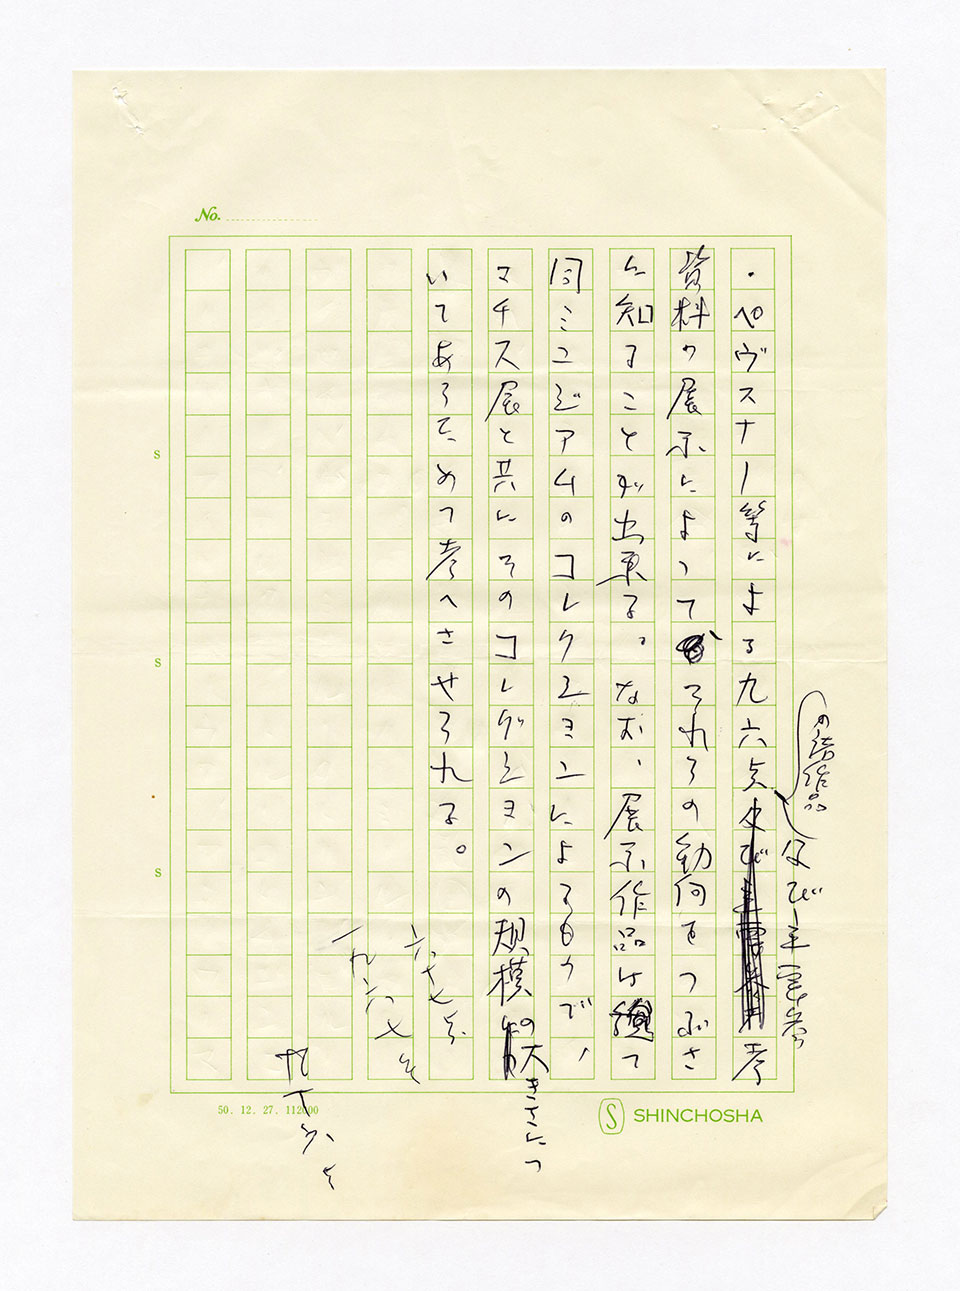 No.
の諸作品
及び主要参
・ペヴスナー等による九六点 考
資料の展示によって それらの動向をつぶさ
に知ることが出来る。なお、展示作品は総て
同ミュジアムのコレクションによるもので、
マチス展と共にそのコレクションの規模の大きさにつ
いてあらためて考へさせられる。
S
S
S
50. 12. 27. 112000
S SHINCHOSHA